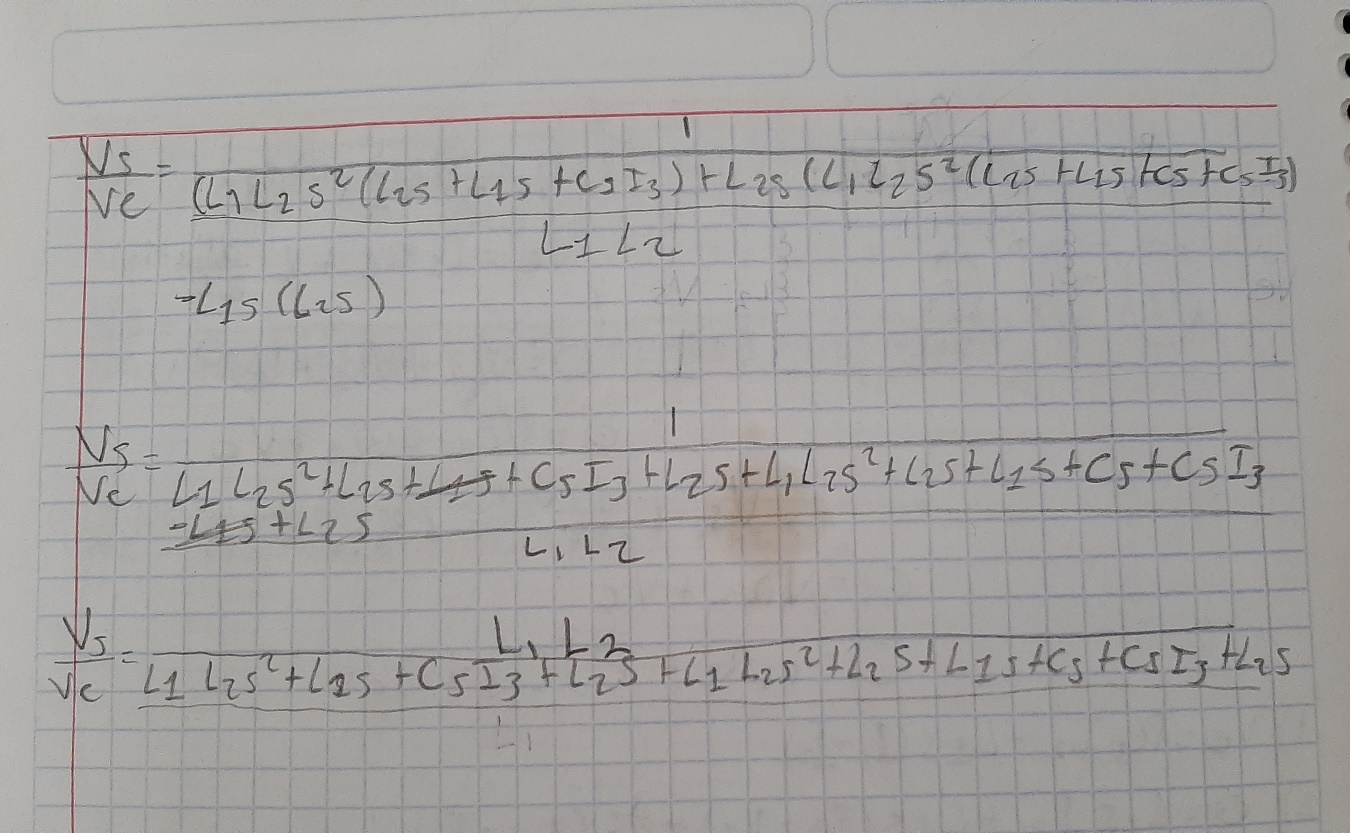 1
Vs/Ve = (L1 L2 s² (L2s + L1s + Cs I3) + L2s (L1 L2 s² (L2s + L1s + Cs + Cs I3)
L1 L2
-L1s (L2s)
1
Vs/Ve = L1 L2s² + L2s + L1s + Cs I3 + L2s + L1 L2s² + L2s + L1s + Cs + Cs I3
-L1s + L2s
L1 L2
L1 L2
Vs/Ve = L1 L2s² + L2s + Cs I3 + L2s + L1 L2s² + L2s + L1s + Cs + Cs I3 + L2s